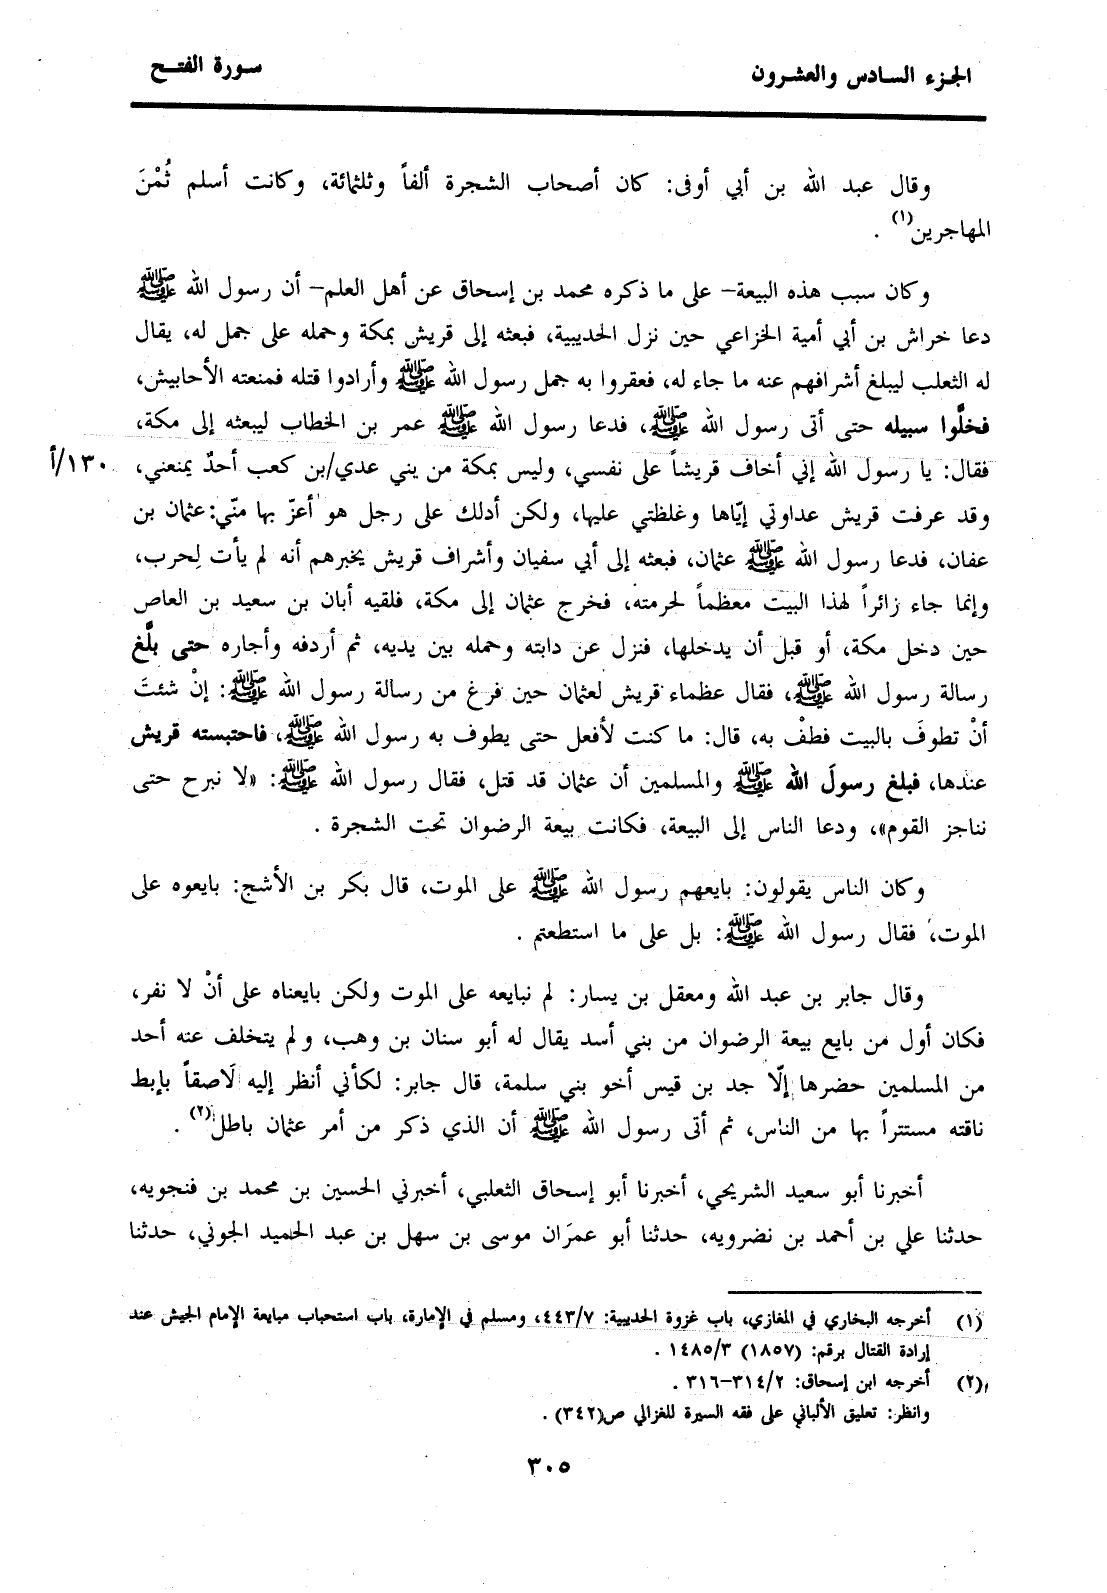 الجزء السادس والعشرون
سورة الفتح
وقال عبد الله بن أبي أوفى: كان أصحاب الشجرة ألفاً وثلثمائة، وكانت أسلم ثُمْنَ
المهاجرين(١) .
وكان سبب هذه البيعة– على ما ذكره محمد بن إسحاق عن أهل العلم– أن رسول الله ﷺ
دعا خراش بن أبي أمية الخزاعي حين نزل الحديبية، فبعثه إلى قريش بمكة وحمله على جمل له، يقال
له الثعلب ليبلغ أشرافهم عنه ما جاء له، فعقروا به جمل رسول الله ﷺ وأرادوا قتله فمنعته الأحابيش،
فخلَّوا سبيله حتى أتى رسول الله ﷺ، فدعا رسول الله ﷺ عمر بن الخطاب ليبعثه إلى مكة،
فقال: يا رسول الله إني أخاف قريشاً على نفسي، وليس بمكة من بني عدي/بن كعب أحدٌ يمنعني،
١٣٠/أ
وقد عرفت قريش عداوتي إيّاها وغلظتي عليها، ولكن أدلك على رجل هو أعزّ بها منّي: عثمان بن
عفان، فدعا رسول الله ﷺ عثمان، فبعثه إلى أبي سفيان وأشراف قريش يخبرهم أنه لم يأت لِحرب،
وإنما جاء زائراً لهذا البيت معظماً لحرمته، فخرج عثمان إلى مكة، فلقيه أبان بن سعيد بن العاص
حين دخل مكة، أو قبل أن يدخلها، فنزل عن دابته وحمله بين يديه، ثم أردفه وأجاره حتى بلَّغ
رسالة رسول الله ﷺ، فقال عظماء قريش لعثمان حين فرغ من رسالة رسول الله ﷺ: إنْ شئتَ
أنْ تطوفَ بالبيت فطفْ به، قال: ما كنت لأفعل حتى يطوف به رسول الله ﷺ، فاحتبسته قريش
عندها، فبلغ رسولَ الله ﷺ والمسلمين أن عثمان قد قتل، فقال رسول الله ﷺ: «لا نبرح حتى
نناجز القوم»، ودعا الناس إلى البيعة، فكانت بيعة الرضوان تحت الشجرة .
وكان الناس يقولون: بايعهم رسول الله ﷺ على الموت، قال بكر بن الأشج: بايعوه على
الموت، فقال رسول الله ﷺ: بل على ما استطعتم .
وقال جابر بن عبد الله ومعقل بن يسار: لم نبايعه على الموت ولكن بايعناه على أنْ لا نفر،
فكان أول من بايع بيعة الرضوان من بني أسد يقال له أبو سنان بن وهب، ولم يتخلف عنه أحد
من المسلمين حضرها إلّا جد بن قيس أخو بني سلمة، قال جابر: لكأني أنظر إليه لَاصقاً بإبط
ناقته مستتراً بها من الناس، ثم أتى رسول الله ﷺ أن الذي ذكر من أمر عثمان باطل(٢) .
أخبرنا أبو سعيد الشريحي، أخبرنا أبو إسحاق الثعلبي، أخبرني الحسين بن محمد بن فنجويه،
حدثنا علي بن أحمد بن نضرويه، حدثنا أبو عمرَان موسى بن سهل بن عبد الحميد الجوني، حدثنا
(١) أخرجه البخاري في المغازي، باب غزوة الحديبية: ٤٤٣/٧، ومسلم في الإمارة، باب استحباب مبايعة الإمام الجيش عند
إرادة القتال برقم: (١٨٥٧) ١٤٨٥/٣ .
(٢) أخرجه ابن إسحاق: ٣١٤/٢–٣١٦ .
وانظر: تعليق الألباني على فقه السيرة للغزالي ص(٣٤٢) .
٣٠٥